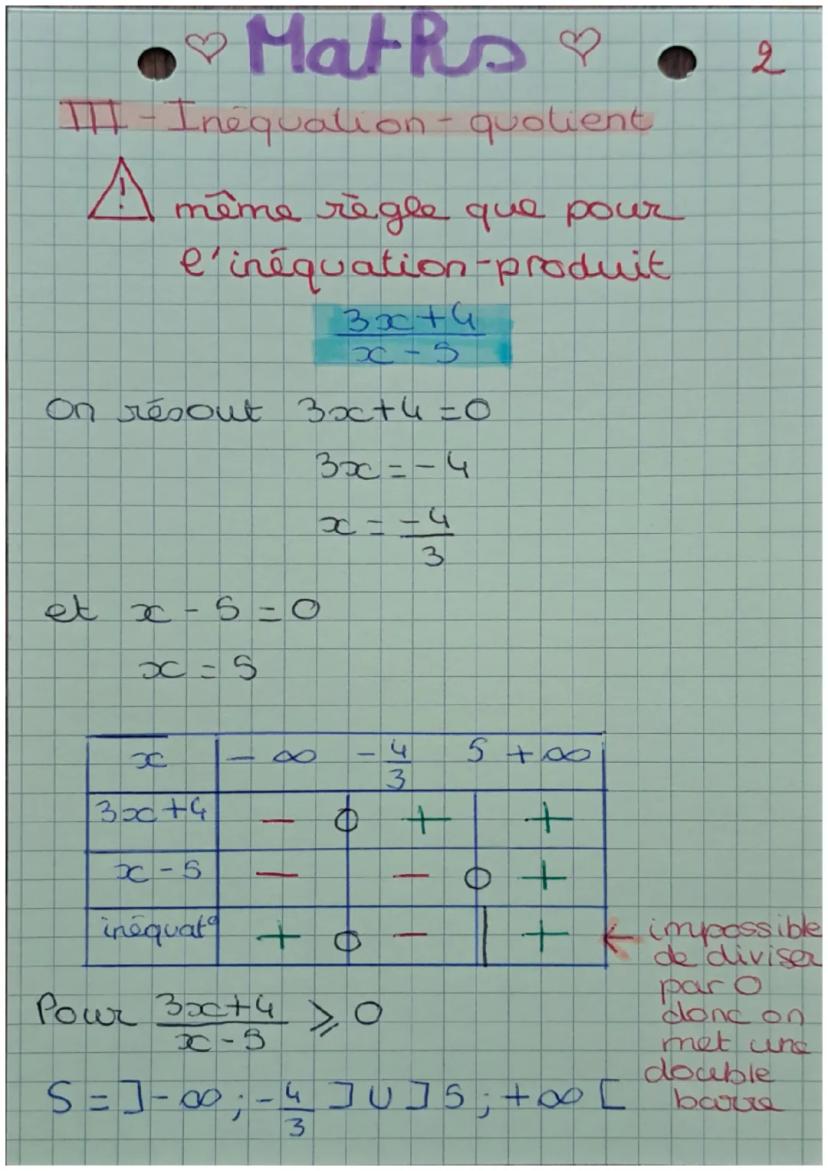 ♡ Maths ♡ 2
III - Inéquation - quotient
⚠ même règle que pour
l'inéquation-produit
3x+4
x-5
On résout 3x+4=0
3x=-4
x=-4/3
et x-5=0
x=5
x -∞ -4/3 5 +∞
3x+4 - 0 + +
x-5 - - 0 +
inéquat° + 0 - || +
← impossible
de diviser
par 0
donc on
met une
double
barre
Pour 3x+4/x-5 ⩾ 0
S=]-∞;-4/3]U]5;+∞[